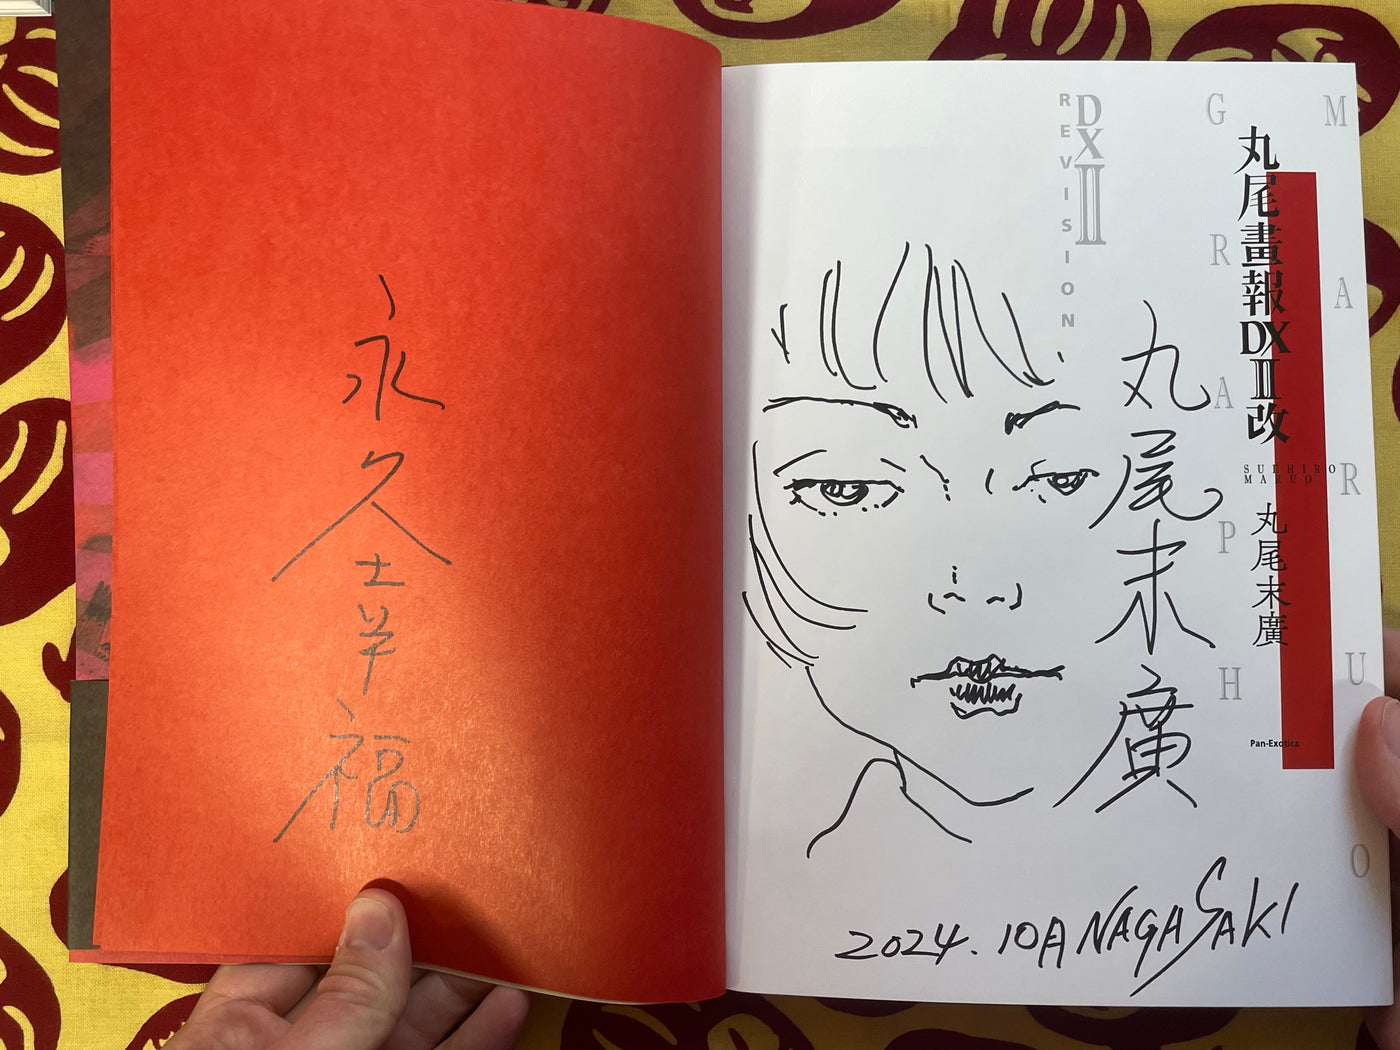 永久幸福
MARUO
GRAPH
丸尾畫報DXⅡ改
SUEHIRO
MARUO
丸尾末廣
Pan-Exotica
DXⅡ
REVISION
丸尾末廣
2024.10月 NAGASAKI